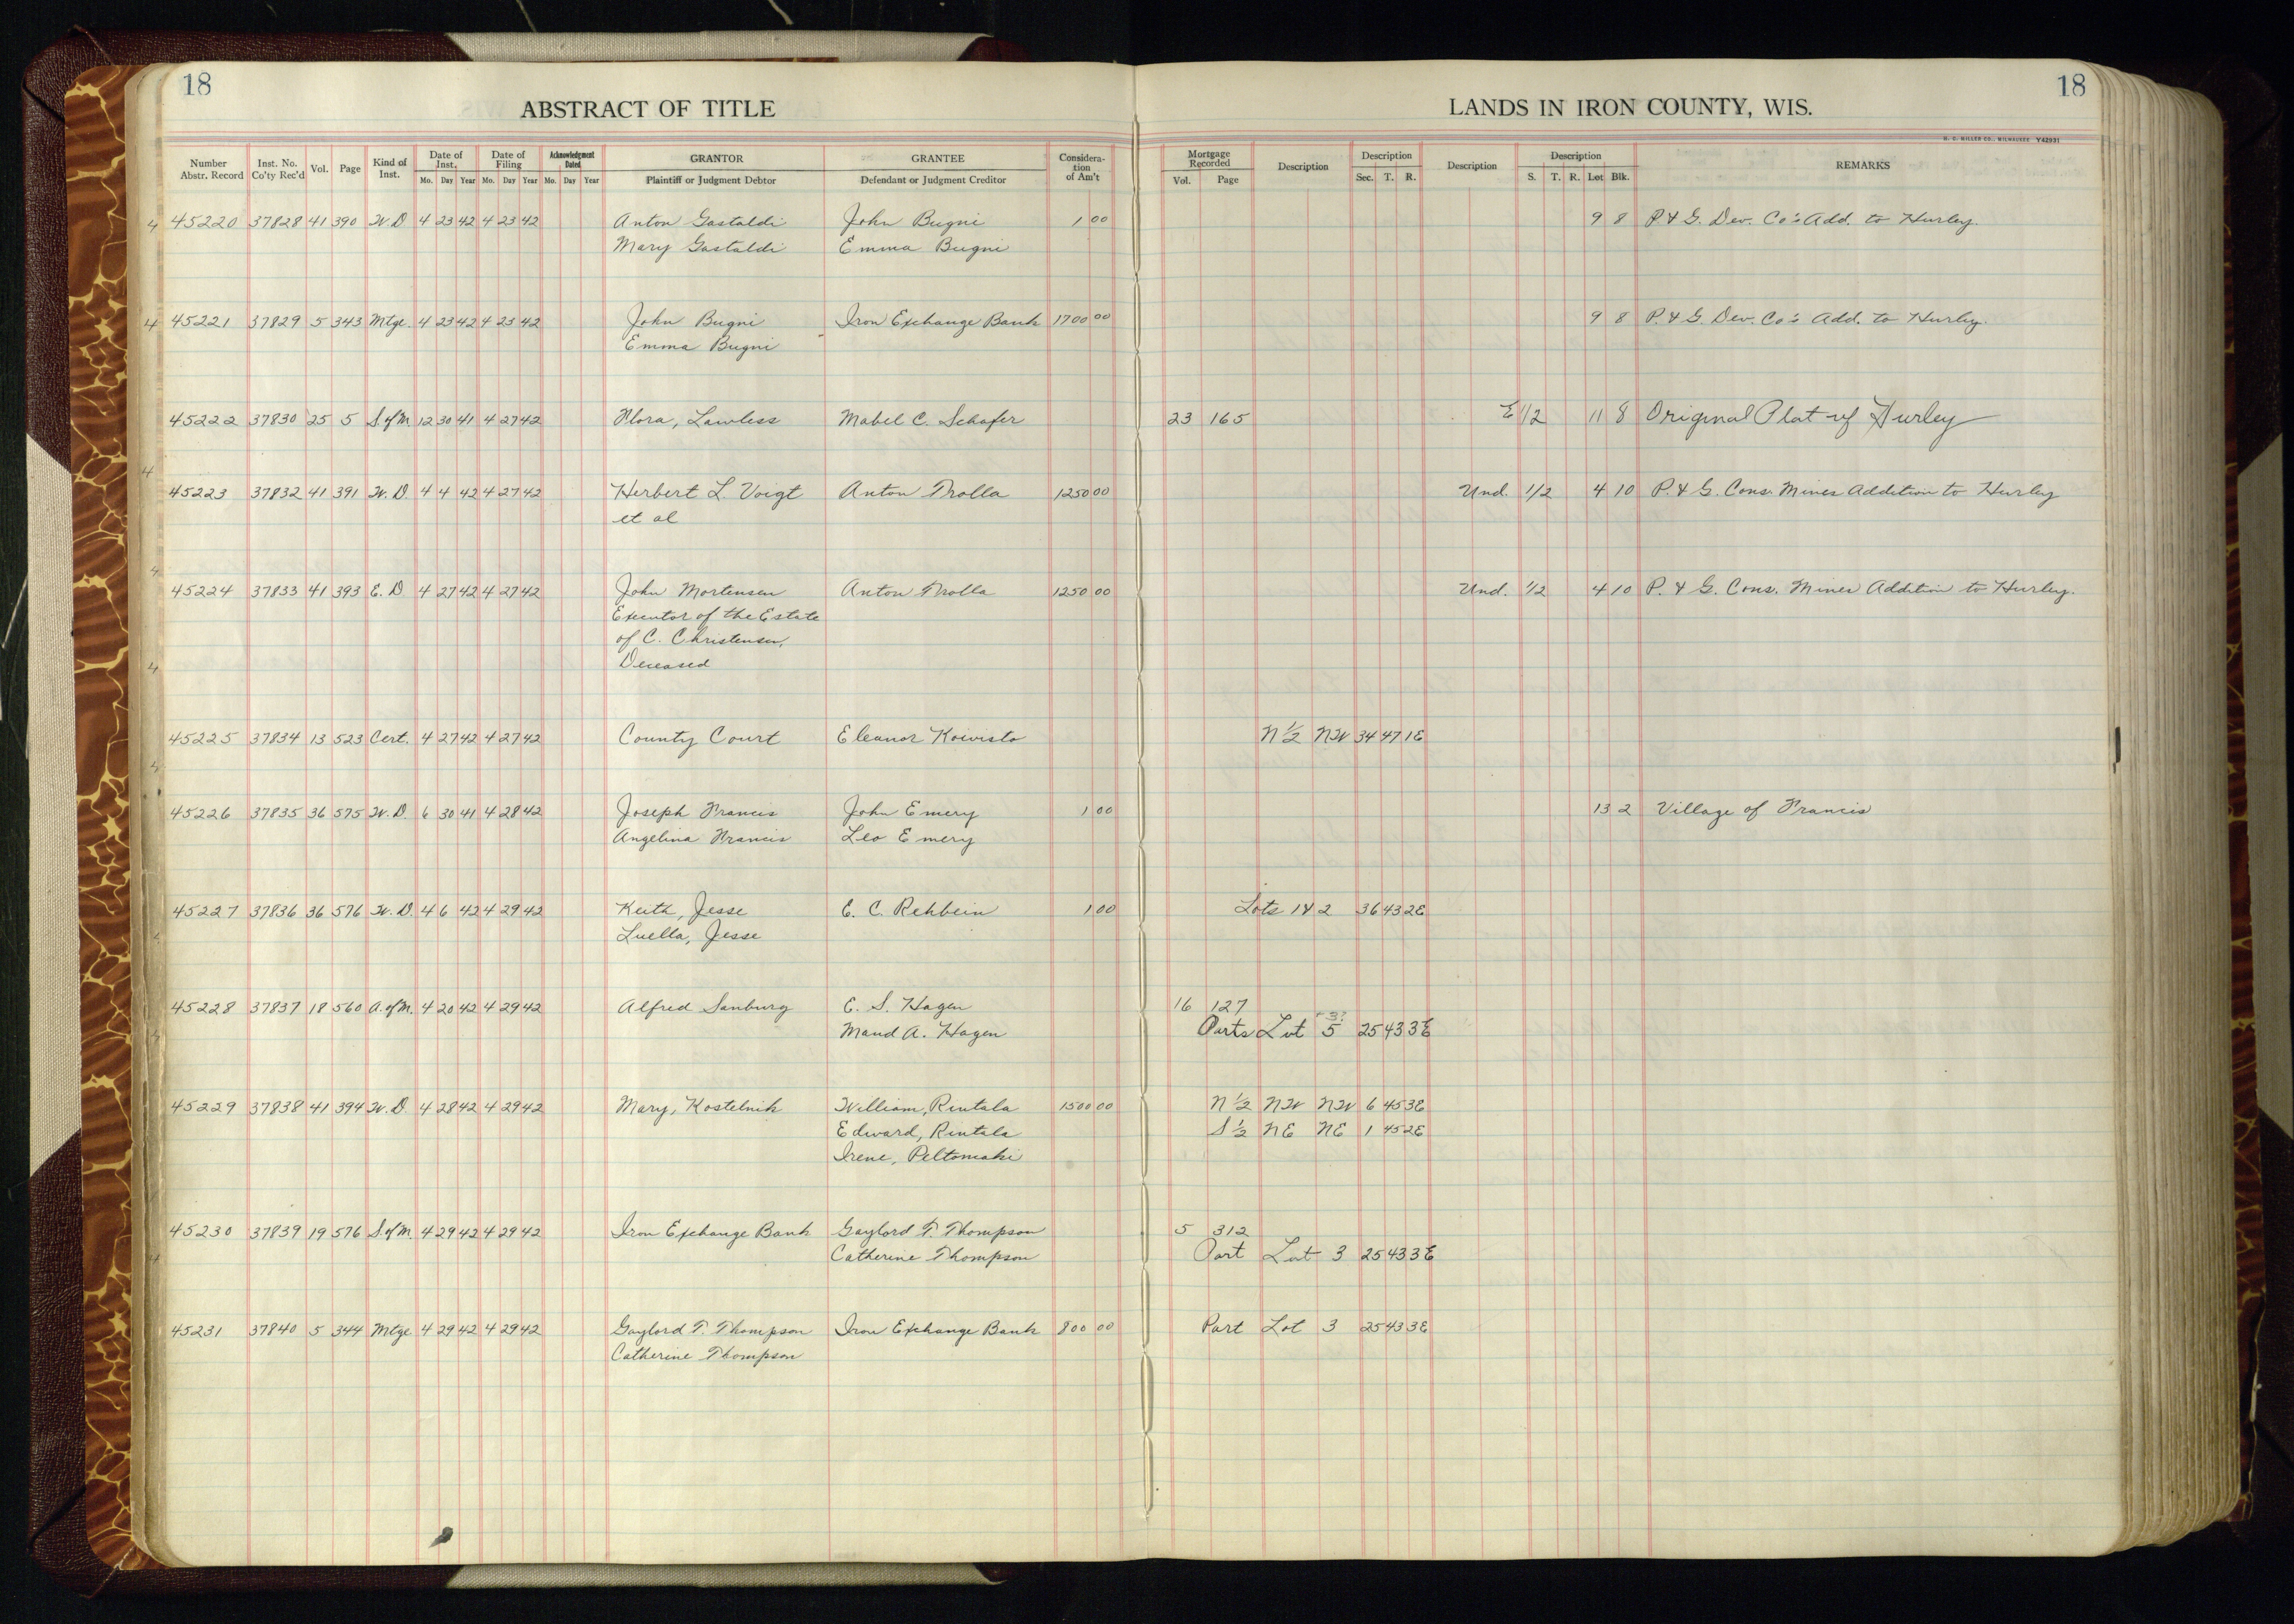 18
18
ABSTRACT OF TITLE
LANDS IN IRON COUNTY, WIS.
H. C. MILLER CO., MILWAUKEE Y42931
Number Abstr. Record Inst. No. Co'ty Rec'd Vol. Page Kind of Inst. Date of Inst. Mo. Day Year Date of Filing Mo. Day Year Acknowledgment Dated Mo. Day Year GRANTOR Plaintiff or Judgment Debtor GRANTEE Defendant or Judgment Creditor Consideration of Am't Mortgage Recorded Vol. Page Description Description Sec. T. R. Description Description S. T. R. Lot Blk. REMARKS
4 45220 37828 41 390 W.D 4 23 42 4 23 42 Anton Gastaldi John Bugni 1 00 9 8 P. & G. Dev. Co's Add. to Hurley.
Mary Gastaldi Emma Bugni
4 45221 37829 5 343 Mtge. 4 23 42 4 23 42 John Bugni Iron Exchange Bank 1700 00 9 8 P. & G. Dev. Co's Add. to Hurley.
Emma Bugni
45222 37830 25 5 S.ofM. 12 30 41 4 27 42 Flora, Lawless Mabel C. Schafer 23 165 E 1/2 11 8 Original Plat of Hurley
4
45223 37832 41 391 W.D. 4 4 42 4 27 42 Herbert L Voigt Anton Trolla 1250 00 Und. 1/2 4 10 P. & G. Cons. Mines Addition to Hurley
et al
4
45224 37833 41 393 E.D. 4 27 42 4 27 42 John Mortensen Anton Trolla 1250 00 Und. 1/2 4 10 P. & G. Cons. Mines Addition to Hurley.
Executor of the Estate
of C. Christensen,
4 Deceased
45225 37834 13 523 Cert. 4 27 42 4 27 42 County Court Eleanor Koivisto N 1/2 NW 34 47 1E
4
45226 37835 36 575 W.D. 6 30 41 4 28 42 Joseph Francis John Emery 1 00 13 2 Village of Francis
Angelina Francis Leo Emery
45227 37836 36 576 W.D. 4 6 42 4 29 42 Keith, Jesse E. C. Rehbein 1 00 Lots 1 & 2 36 43 2E
Luella, Jesse
45228 37837 18 560 A.ofM. 4 20 42 4 29 42 Alfred Sanburg E. S. Hagen 16 127
Maud A. Hagen Parts Lot 5 3? 25 43 3E
45229 37838 41 394 W.D 4 28 42 4 29 42 Mary, Kostelnik William, Rintala 1500 00 N 1/2 NW NW 6 45 3E
Edward, Rintala S 1/2 NE NE 1 45 2E
Irene, Peltomaki
45230 37839 19 576 S.ofM. 4 29 42 4 29 42 Iron Exchange Bank Gaylord T. Thompson 5 312
4 Catherine Thompson Part Lot 3 25 43 3E
45231 37840 5 344 Mtge 4 29 42 4 29 42 Gaylord T. Thompson Iron Exchange Bank 800 00 Part Lot 3 25 43 3E
Catherine Thompson